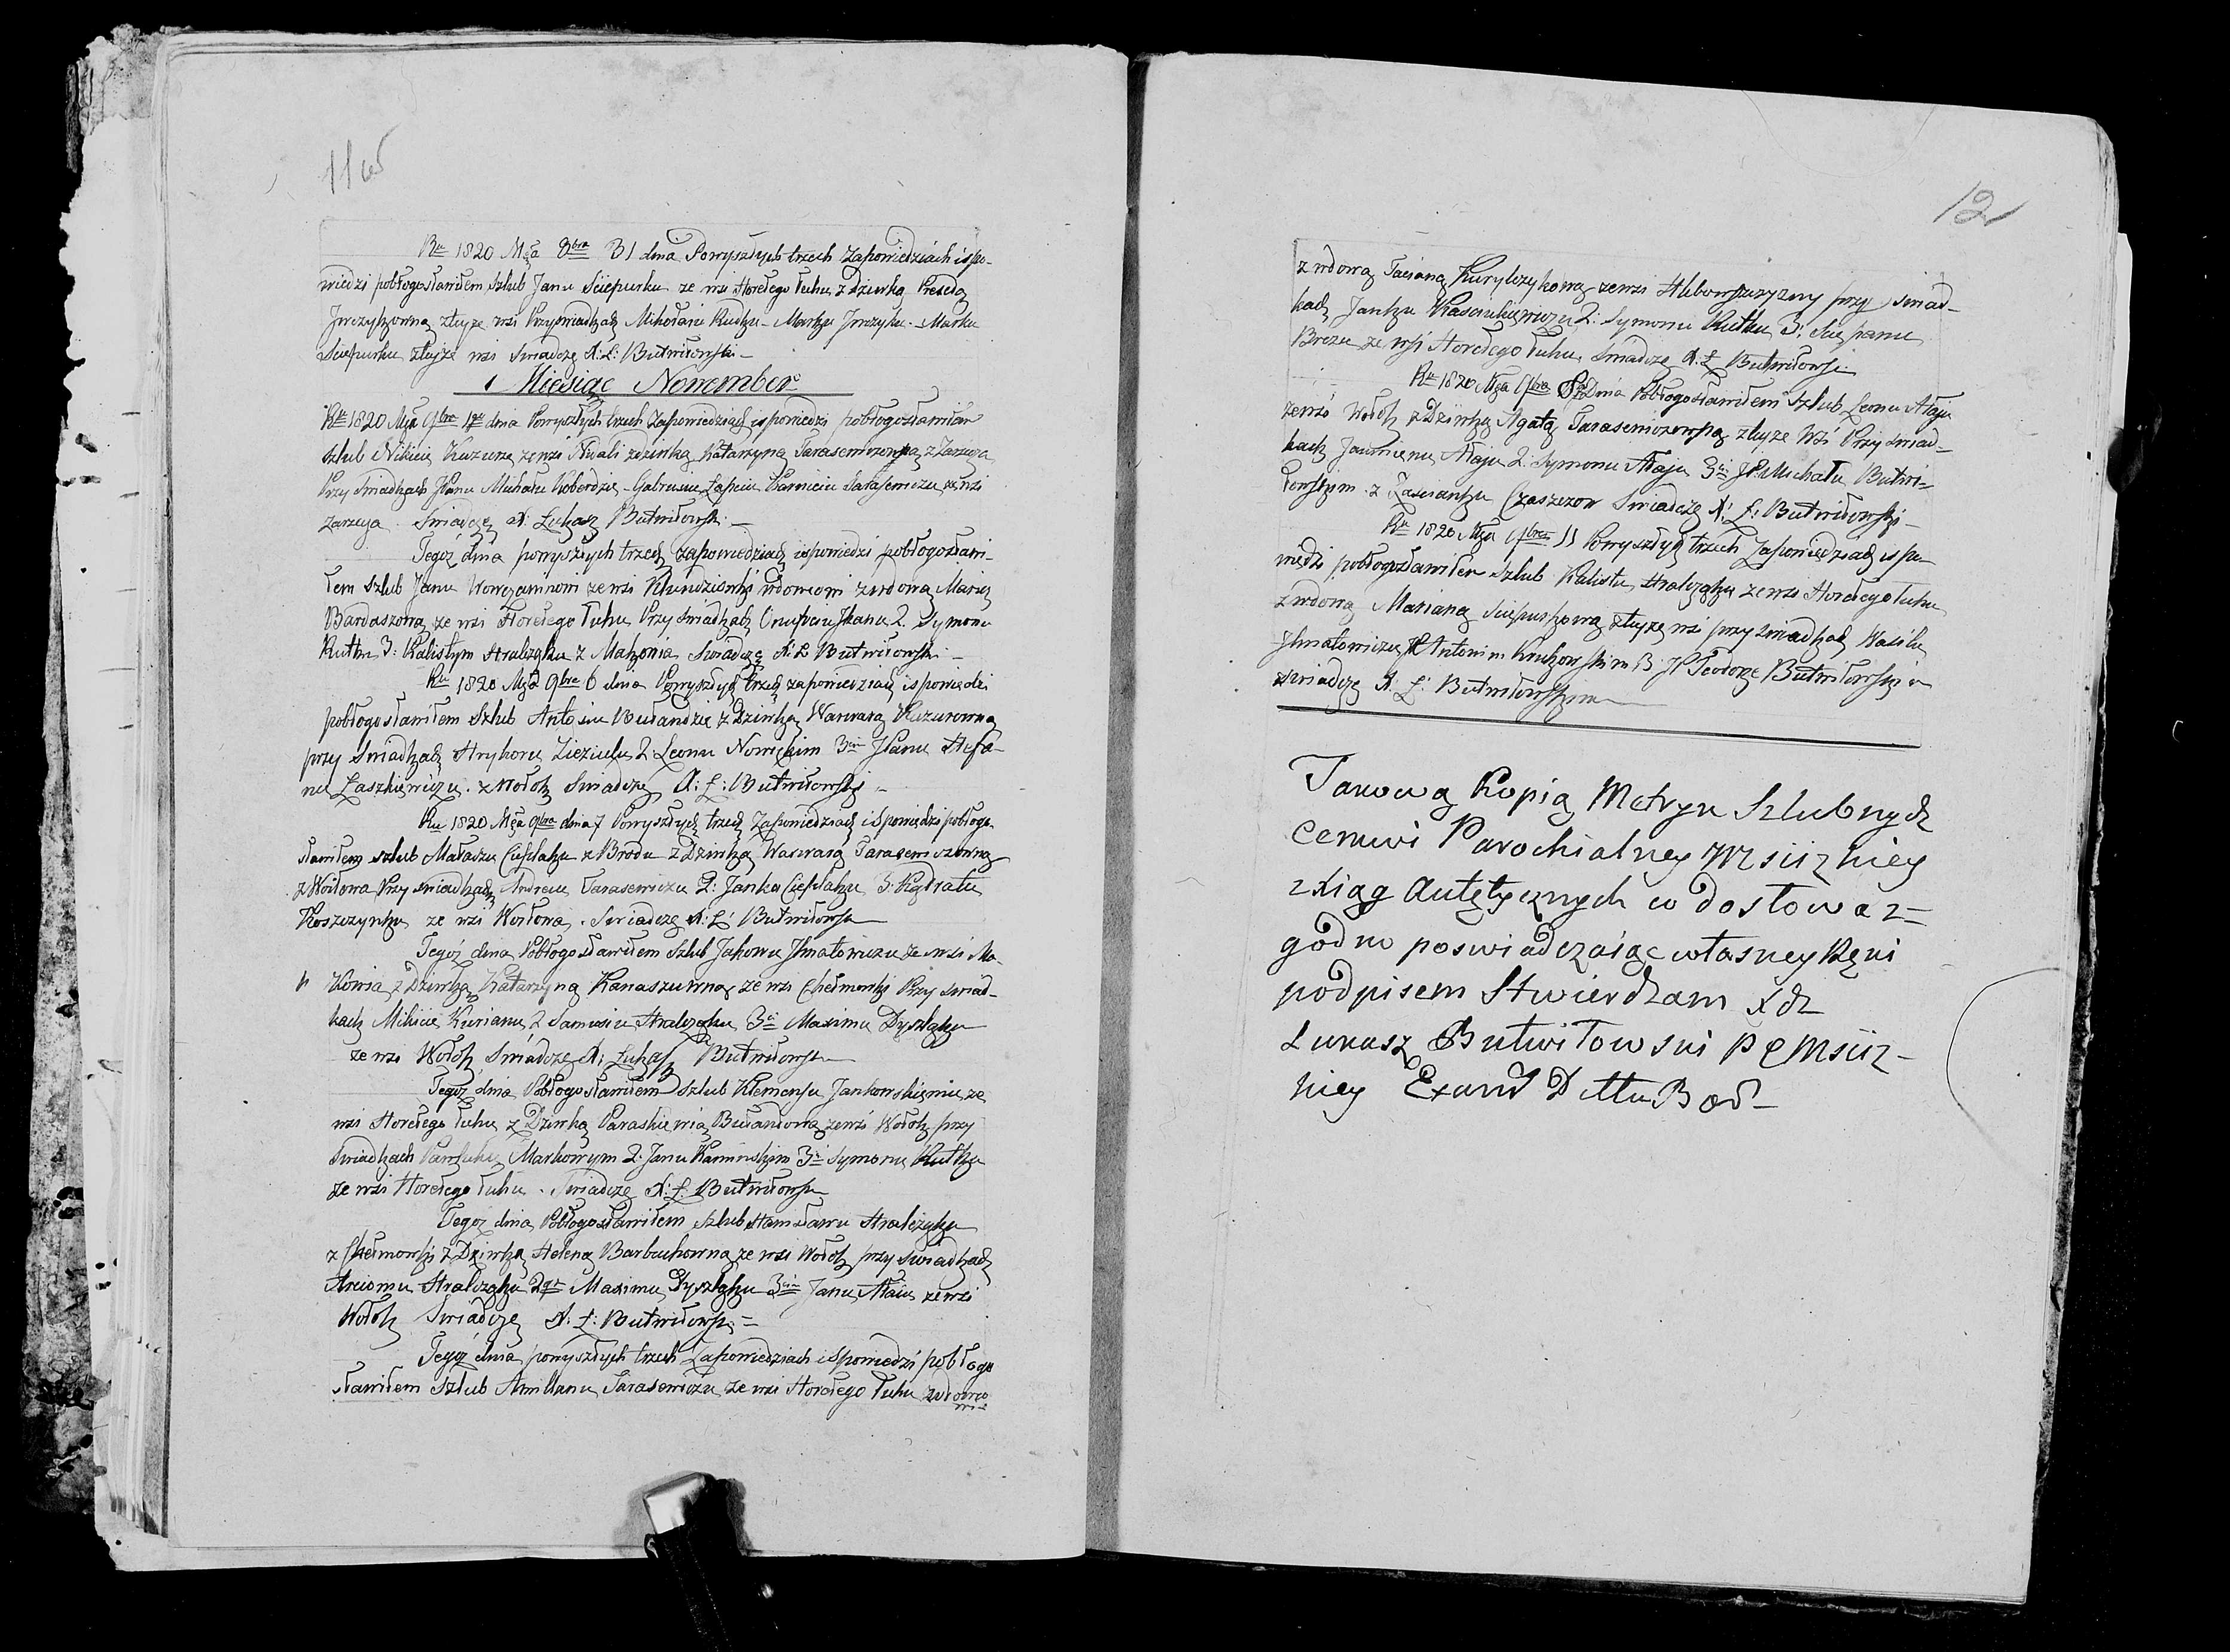 11 об
Ru 1820 Mca 8bra 31 dnia Powyszłych trzech Zapowiedziach i spo-
wiedzi pobłogosławiłem szlub Janu Sciepurku ze wsi Horełego Łuhu z dziewką
Jurczykowną z tejże wsi Przy swiadkach Mikołaiu Rudku - Marku Jurczyku - Marku
Sciepurku z tejże wsi Swiadczę X: Ł: Butwiłowski -
Miesiąc Nowember
Ru 1820 Mca 9bra 1go dnia Powyszłych trzech Zapowiedziach i spowiedzi pobłogosławiłem
szlub Nikicie Kuzurze ze wsi z dziewką Katarzyną Tarasewiczowną z Zarzecza
Przy Swiadkach JPanu Michału Koberdzie - Gabrusiu Łapciu Tarasewiczu ze wsi
Zarzecza. Swiadczę X: Łukasz Butwiłowski. -
Tegoż dnia powyszłych trzech zapowiedziach i spowiedzi pobłogosławi-
łem szlub Janu ze wsi wdowcowi z wdową Maryą
Bardaszową ze wsi Horełego Łuhu Przy swiadkach 2. Symonu
Rutku 3: Kalistym Hralczyku z Makowia Swiadczę X: Ł Butwiłowski -
Ru 1820 Mca 9bra 6 dnia Powyszłych trzech zapowiedziach i spowiedzi
pobłogosławiłem Szlub Antosiu Bułandzie z Dziewką Warwarą Kuzurowną
przy Swiadkach Hryhoru Zieziulu 2 Leonu Nowickim 3im JPanu Stefa-
nu Łaszkiewiczu. z Wołok Swiadczę X: Ł: Butwiłowski -
Ru 1820 Mca 9bra dnia 7 Powyszłych trzech Zapowiedziach i Spowiedzi pobłogo-
sławiłem szlub Małaszu Cieplaku z Brodu z Dziewką Warwarą Tarasewiczowną
z Wosłowa Przy swiadkach Andreiu Tarasewiczu 2: Janka Cieplaku 3: Kądratu
Koszczynku ze wsi Wosłowa. Swiadczę X: Ł: Butwiłowski
Tegoż dnia Pobłogosławiłem Szlub Jakowu Jhnatowiczu ze wsi Ma-
kowia z Dziewką Katarzyną Kanaszuwną ze wsi Chełmowki Przy swiad-
kach Mikicie Kurianu 2 Samusiu Hralczyku 3i Maximu Dyszlaku
ze wsi Wołok Swiadczę X: Łukasz Butwiłowski
Tegoż dnia Pobłogosławiłem szlub Klemensu Jankowskiemu ze
wsi Horełego Łuhu z Dziewką Paraskiewią Bułandowną ze wsi Wołok przy
Swiadkach Markowym 2: Janu Kaminskim 3i Symonu Rutku
ze wsi Horełego Łuhu. Swiadczę X: Ł: Butwiłowski
Tegoż dnia Pobłogosławiłem szlub Stanisławu Hralczyku
z Chełmowki z Dziewką Heleną Barbuchowną ze wsi Wołok przy swiadkach
Arciomu Hralczyku 2gi Maximu Dyszlaku 3im Janu Ałaiu ze wsi
Wołok Swiadczę X: Ł: Butwiłowski =
Tegoż dnia powyszłych trzech Zapowiedziach i Spowiedzi pobłogo
sławiłem szlub Amillanu Tarasewiczu ze wsi Horełego Łuhu wdowco
wi-
12
z wdową Tacianą Kurylczykową ze wsi przy swiad-
kach Janku 2: Symonu Rutku 3: Sciepanu
Brozu ze wsi Horełego Łuhu. Swiadczę X. Ł Butwiłowski
Ru 1820 Mca 9bra 8 Dnia Pobłogosławiłem Szlub Leonu Ałaju
ze wsi Wołok z Dziewką Agatą Tarasewiczowną z tejże Wsi Przy swiad-
kach Ałaju 2: Symonu Ałaju 3i JP. Michału Butwi-
łowskim z Zascianku Czaszczow Swiadczę X: Ł: Butwiłowski -
Ru 1820 Mca 9bra 11 Powyszłych trzech Zapowiedziach i spo-
wiedzi pobłogosławiłem Szlub Kalistu Hralczyku ze wsi Horełego Łuhu
z wdową Marianą Sciepurkową z tejże wsi przy swiadkach Wasilu
Jhnatowiczu JP Antonim Krukowskim 3: JP Teodorze Butwiłowskim
swiadczę X. Ł: Butwiłowskim
Takową Kopią Metryk Szlubnych
Cerkwi Parochialney Mscizkiey
z Xiąg Autętycznych co do słowa z=
godno poswiadczaiąc własney Ręki
podpisem Stwierdzam Xdz
Łukasz Butwiłowski P C Msciz-
kiey